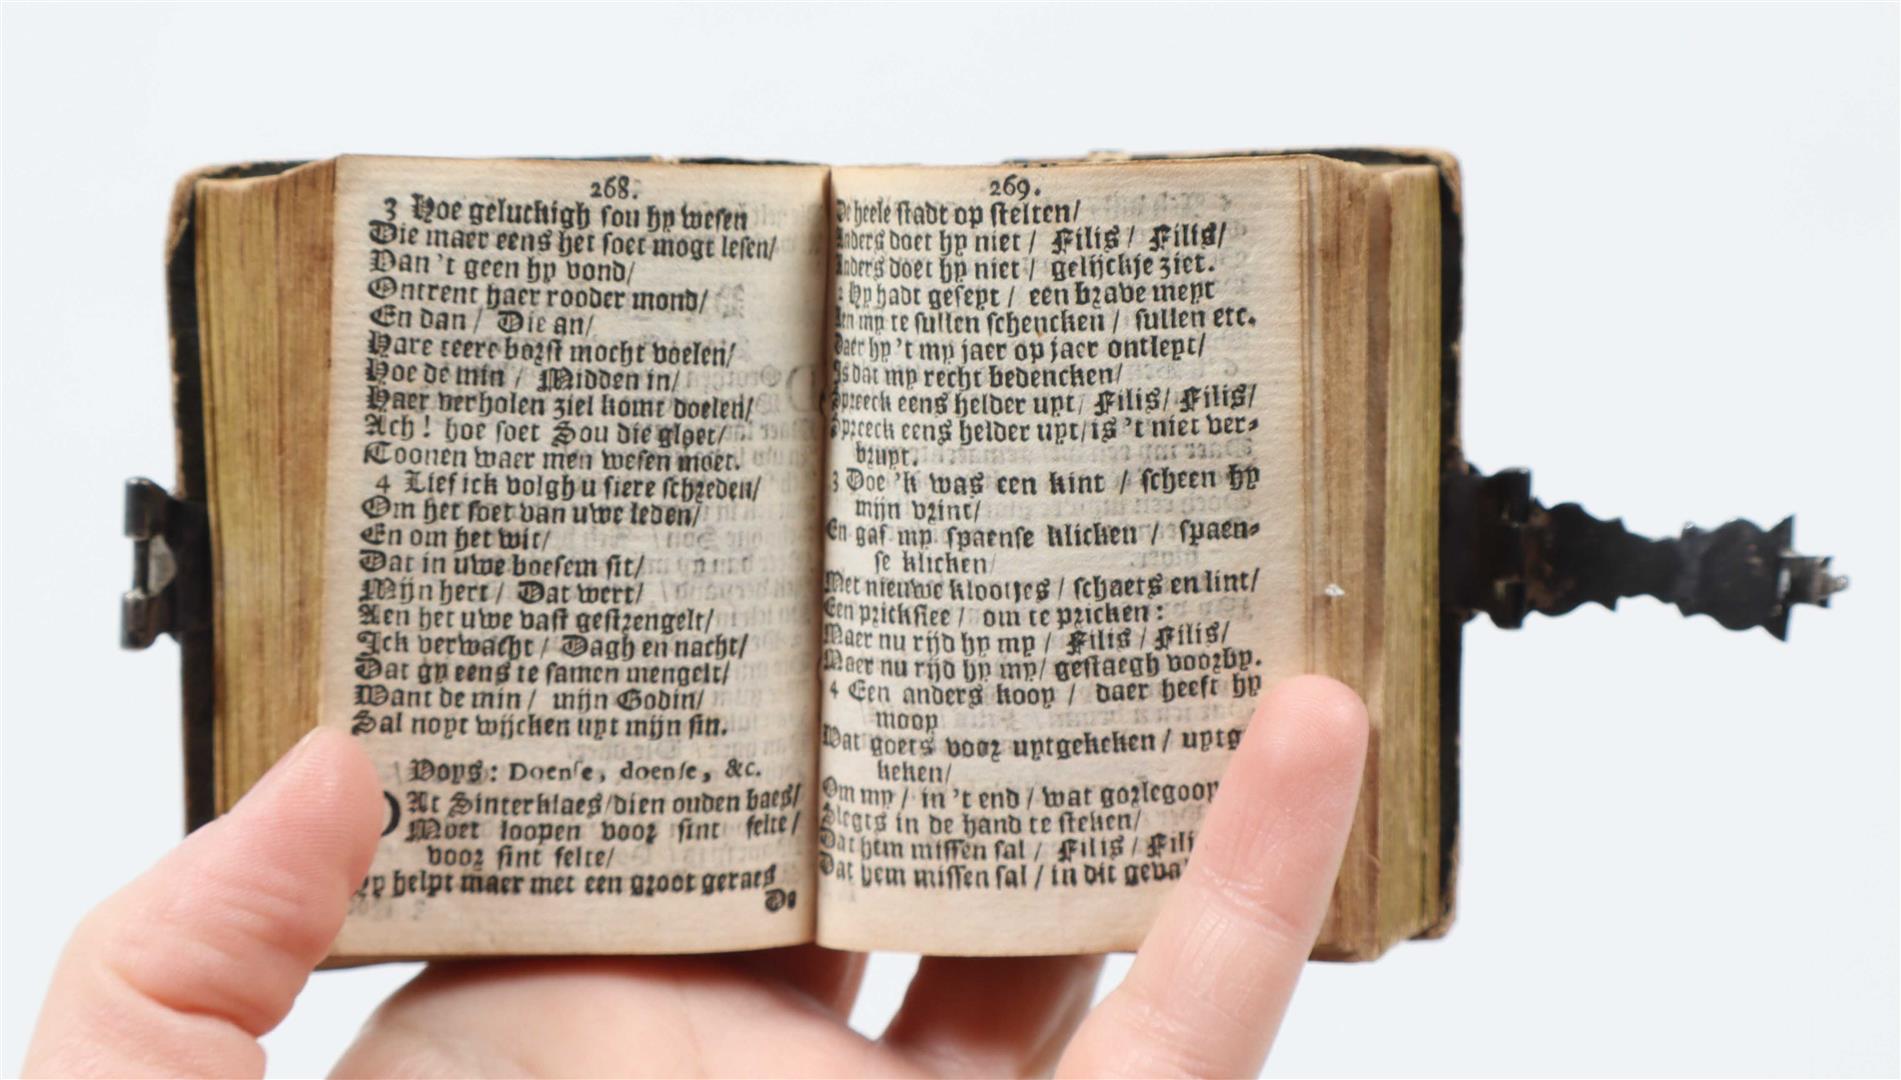 268.
3 Hoe geluckigh sou hy wesen
Die maer eens het soet mogt lesen/
Dan 't geen hy vond/
Ontrent haer rooder mond/
En dan / Die an/
Hare teere borst mocht voelen/
Hoe de min / Midden in/
Haer verholen ziel komt doelen/
Ach! hoe soet Sou die gloet/
Toonen waer men wesen moet.
4 Lief ick volgh u fiere schreden/
Om het soet van uwe leden/
En om het wit/
Dat in uwe boesem sit/
Mijn hert / Dat wert/
Aen het uwe vast gestrengelt/
Ick verwacht / Dagh en nacht/
Dat gy eens te samen mengelt/
Want de min / mijn Godin/
Sal noyt wijcken uyt mijn sin.
Voys: Doense, doense, &c.
DAt Sinterklaes/dien ouden baes/
Moet loopen voor sint felte/
voor sint felte/
helpt maer met een groot geraes
De
269.
De heele stadt op stelten/
Anders doet hy niet / Filis / Filis/
Anders doet hy niet / gelijckje ziet.
2 Hy hadt geseyt / een brave meyt
Aen my te sullen schencken / sullen etc.
Daer hy 't my jaer op jaer ontleyt/
Is dat my recht bedencken/
Spreeck eens helder uyt/ Filis/ Filis/
Spreeck eens helder uyt/is 't niet ver-
bruyt.
3 Doe 'k was een kint / scheen hy
mijn vrint/
En gaf my spaense klicken / spaen-
se klicken/
Met nieuwe klootjes / schaets en lint/
Een prickslee / om te pricken:
Maer nu rijd hy my / Filis / Filis/
Maer nu rijd hy my/ gestaegh voorby.
4 Een anders koop / daer heeft hy
moop
Wat goets voor uytgekeken / uytg
keken/
Om my / in 't end / wat gorlegoop
Slegts in de hand te steken/
Dat hem missen sal / Filis / Fili
Dat hem missen sal / in dit geva